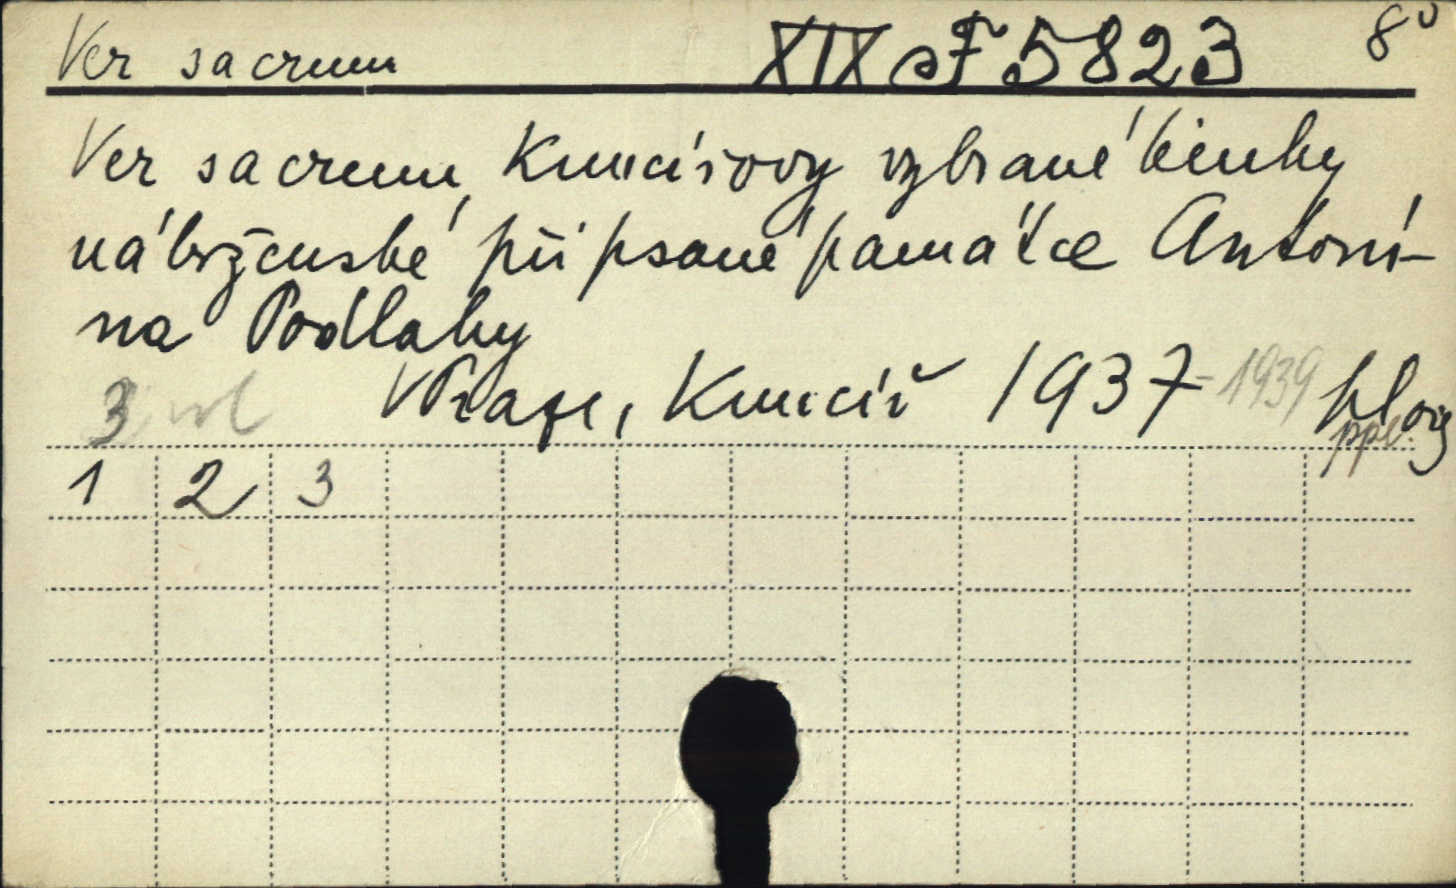 Ver sacrum XIX F 5823 8°
Ver sacrum, Kuncířovy vybrané knihy
náboženské připsané památce Antoní-
na Podlahy
3 sv V Praze, Kuncíř 1937-1939
ppl.
1 2 3